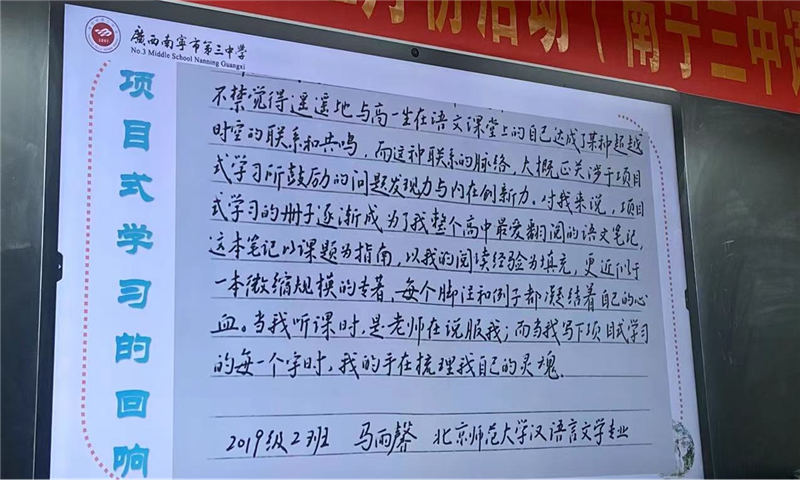 月份活动（南宁三中
广西南宁市第三中学
No.3 Middle School Nanning Guangxi
项目式学习的回响
不禁觉得遥遥地与高一坐在语文课堂上的自己达成了某种超越
时空的联系和共鸣，而这种联系的脉络，大概正关涉于项目
式学习所鼓励的问题发现力与内在创新力。对我来说，项目
式学习的册子逐渐成为了我整个高中最爱翻阅的语文笔记，
这本笔记以课题为指南，以我的阅读经验为填充，更近似于
一本微缩规模的专著，每个脚注和例子都凝结着自己的心
血。当我听课时，是老师在说服我；而当我写下项目式学习
的每一个字时，我的手在梳理我自己的灵魂。
2019级2班 马雨馨 北京师范大学汉语言文学专业